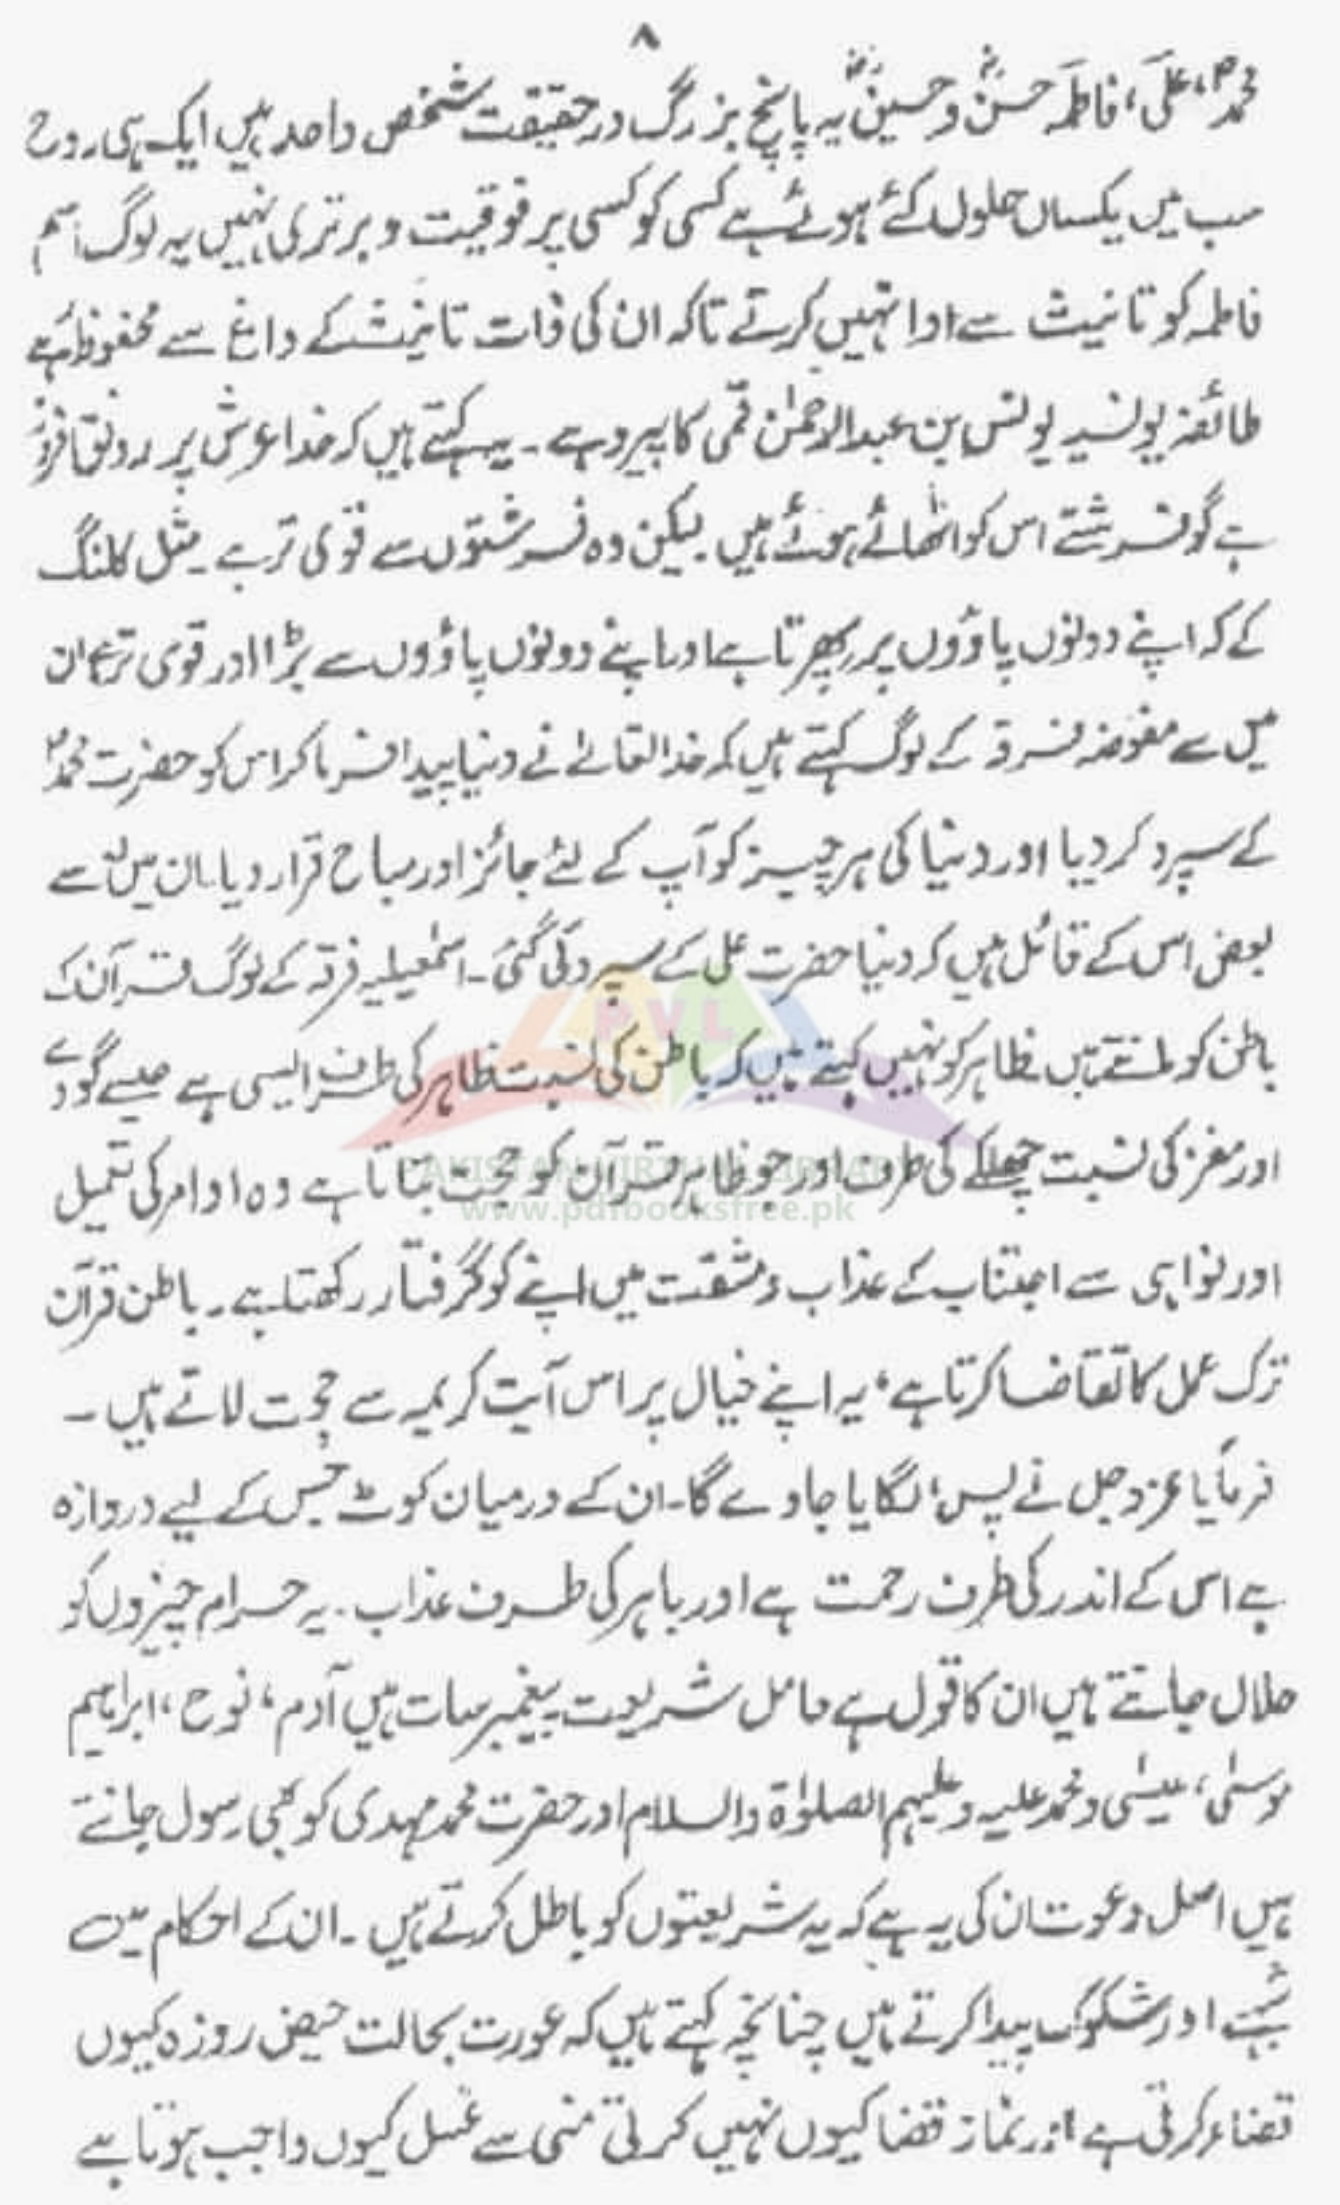 ۸
محمدؐ، علیؑ، فاطمہؑ حسنؓ و حسینؓ یہ پانچ بزرگ درحقیقت شخص واحد ہیں ایک ہی روح
سب میں یکساں حلول کئے ہوئے ہے کسی کو کسی پر فوقیت و برتری نہیں یہ لوگ اسم
فاطمہ کو تانیث سے ادا نہیں کرتے تاکہ ان کی ذات تانیث کے داغ سے محفوظ رہے
طائفہ یونسیہ یونس بن عبدالرحمٰن قمی کا پیرو ہے ۔ یہ کہتے ہیں کہ خدا عرش پر رونق افروز
ہے گو فرشتے اس کو اٹھائے ہوئے ہیں لیکن وہ فرشتوں سے قوی تر ہے ۔ مثل کلنگ
کے کہ اپنے دونوں پاؤں پر پھرتا ہے اور اپنے دونوں پاؤں سے بڑا اور قوی تر ہے ان
میں سے مفوضہ فرقہ کے لوگ کہتے ہیں کہ خدا تعالےٰ نے دنیا پیدا فرما کر اس کو حضرت محمدؐ
کے سپرد کر دیا اور دنیا کی ہر چیز کو آپ کے لئے جائز اور مباح قرار دیا۔ ان میں سے
بعض اس کے قائل ہیں کہ دنیا حضرت علی کے سپرد کی گئی ۔ اسمٰعیلیہ فرقہ کے لوگ قرآن کے
باطن کو مانتے ہیں ظاہر کو نہیں کہتے ہیں کہ باطن کی نسبت ظاہر کی طرف ایسی ہے جیسے گودے
اور مغز کی نسبت چھلکے کی طرف اور جو ظاہر قرآن کو حجت بناتا ہے وہ اوامر کی تعمیل
اور نواہی سے اجتناب کے عذاب و مشقت میں اپنے کو گرفتار رکھتا ہے ۔ باطن قرآن
ترک عمل کا تقاضا کرتا ہے، یہ اپنے خیال پر اس آیت کریمہ سے حجت لاتے ہیں ۔
فرمایا عز و جل نے پس، لگایا جاوے گا۔ ان کے درمیان کوٹ جس کے لیے دروازہ
ہے اس کے اندر کی طرف رحمت ہے اور باہر کی طرف عذاب ۔ یہ حرام چیزوں کو
حلال جانتے ہیں ان کا قول ہے حامل شریعت پیغمبر سات ہیں آدم، نوح، ابراہیم
موسیٰ، عیسٰی و محمد علیہ و علیہم الصلوٰۃ والسلام اور حضرت محمد مہدی کو بھی رسول جانتے
ہیں اصل دعوت ان کی یہ ہے کہ یہ شریعتوں کو باطل کرتے ہیں ۔ ان کے احکام میں
شبہے اور شکوک پیدا کرتے ہیں چنانچہ کہتے ہیں کہ عورت بحالت حیض روزہ کیوں
قضاء کرتی ہے اور نماز قضا کیوں نہیں کرتی منی سے غسل کیوں واجب ہوتا ہے
PVL
PAKISTAN VIRTUAL LIBRARY
www.pdfbooksfree.pk